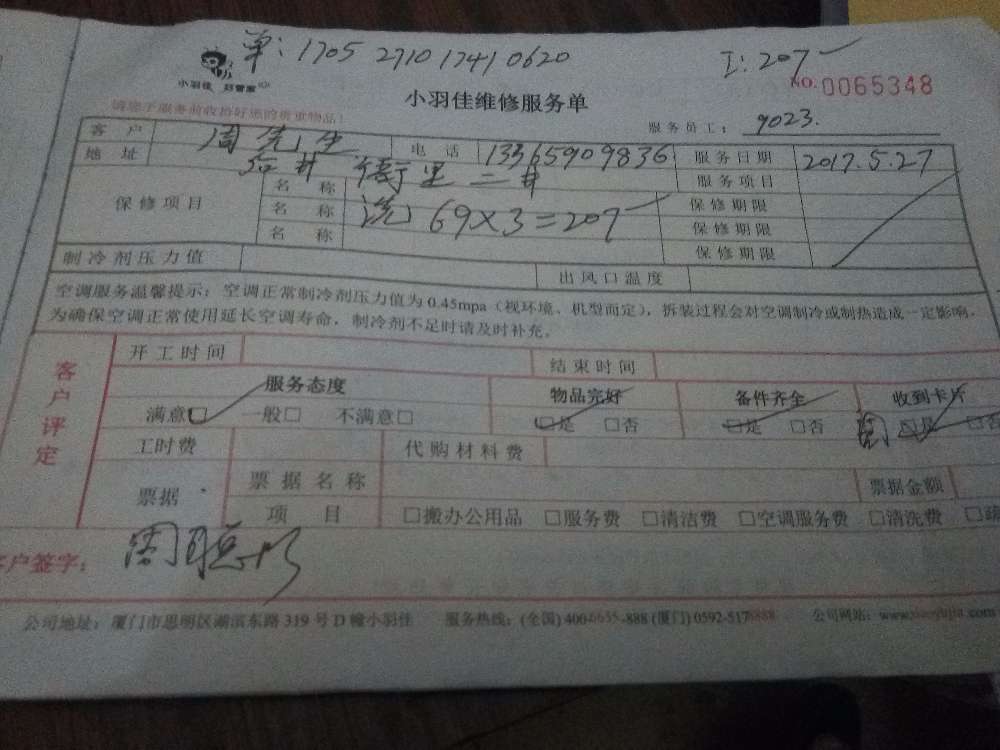 单: 1705 2710 1741 0620
I: 207
小羽佳
NO. 0065348
小羽佳维修服务单
请您于服务前收拾好您的贵重物品!
服务员工: 9023.
客户 周先生 电话 13365909836 服务日期 2017.5.27
地址 服务项目
保修项目 名称 洗 69×3=207 保修期限
名称 保修期限
名称 保修期限
制冷剂压力值 出风口温度
空调服务温馨提示: 空调正常制冷剂压力值为0.45mpa (视环境、机型而定), 拆装过程会对空调制冷或制热造成一定影响,
为确保空调正常使用延长空调寿命, 制冷剂不足时请及时补充。
客户评定
开工时间 结束时间
服务态度 物品完好 备件齐全 收到卡片
满意□ 一般□ 不满意□ □是 □否 □是 □否 □是 □否
工时费 代购材料费
票据 票据名称 票据金额
项目 □搬办公用品 □服务费 □清洁费 □空调服务费 □清洗费
客户签字:
公司地址: 厦门市思明区湖滨东路319号D幢小羽佳 服务热线: (全国) 400-6655-888 (厦门) 0592-5178888 公司网站: